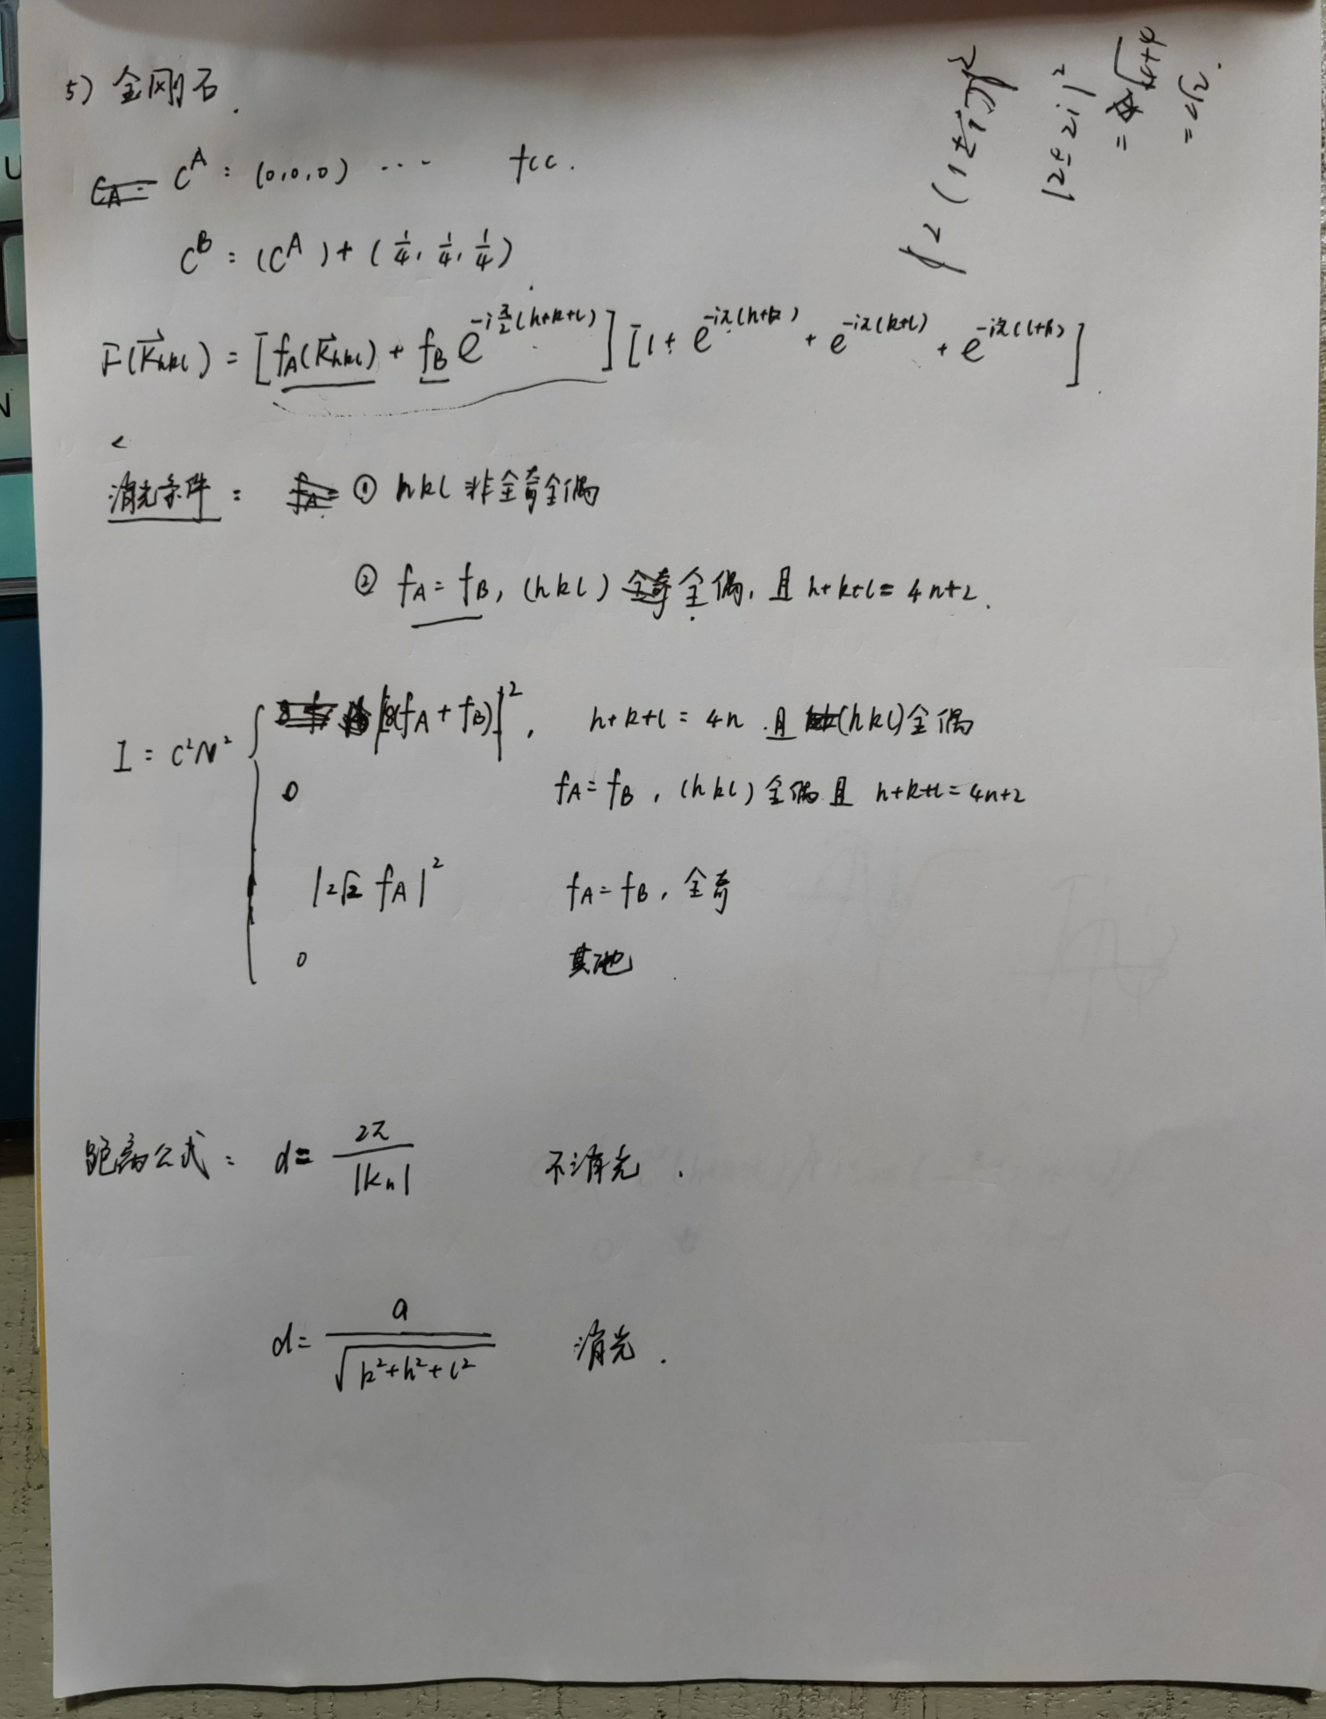 5) 金刚石.
C^A : (0,0,0) ··· fcc.
C^B : (C^A) + (1/4, 1/4, 1/4)
F(K⃗hkl) = [fA(K⃗hkl) + fB e^{-i π/2 (h+k+l)}] [1 + e^{-iπ(h+k)} + e^{-iπ(k+l)} + e^{-iπ(l+h)}]
消光条件: ① hkl 非全奇全偶
② fA = fB, (hkl) 全偶, 且 h+k+l = 4n+2.
I = C²N² {
(fA + fB)|², h+k+l = 4n 且 (hkl) 全偶
0 fA = fB, (hkl) 全偶且 h+k+l = 4n+2
|2√2 fA|² fA = fB, 全奇
0 其他
距离公式: d = 2π / |Kn| 不消光.
d = a / √(k²+h²+l²) 消光.
|2±2i|²
= √(4+4)
= 2√2